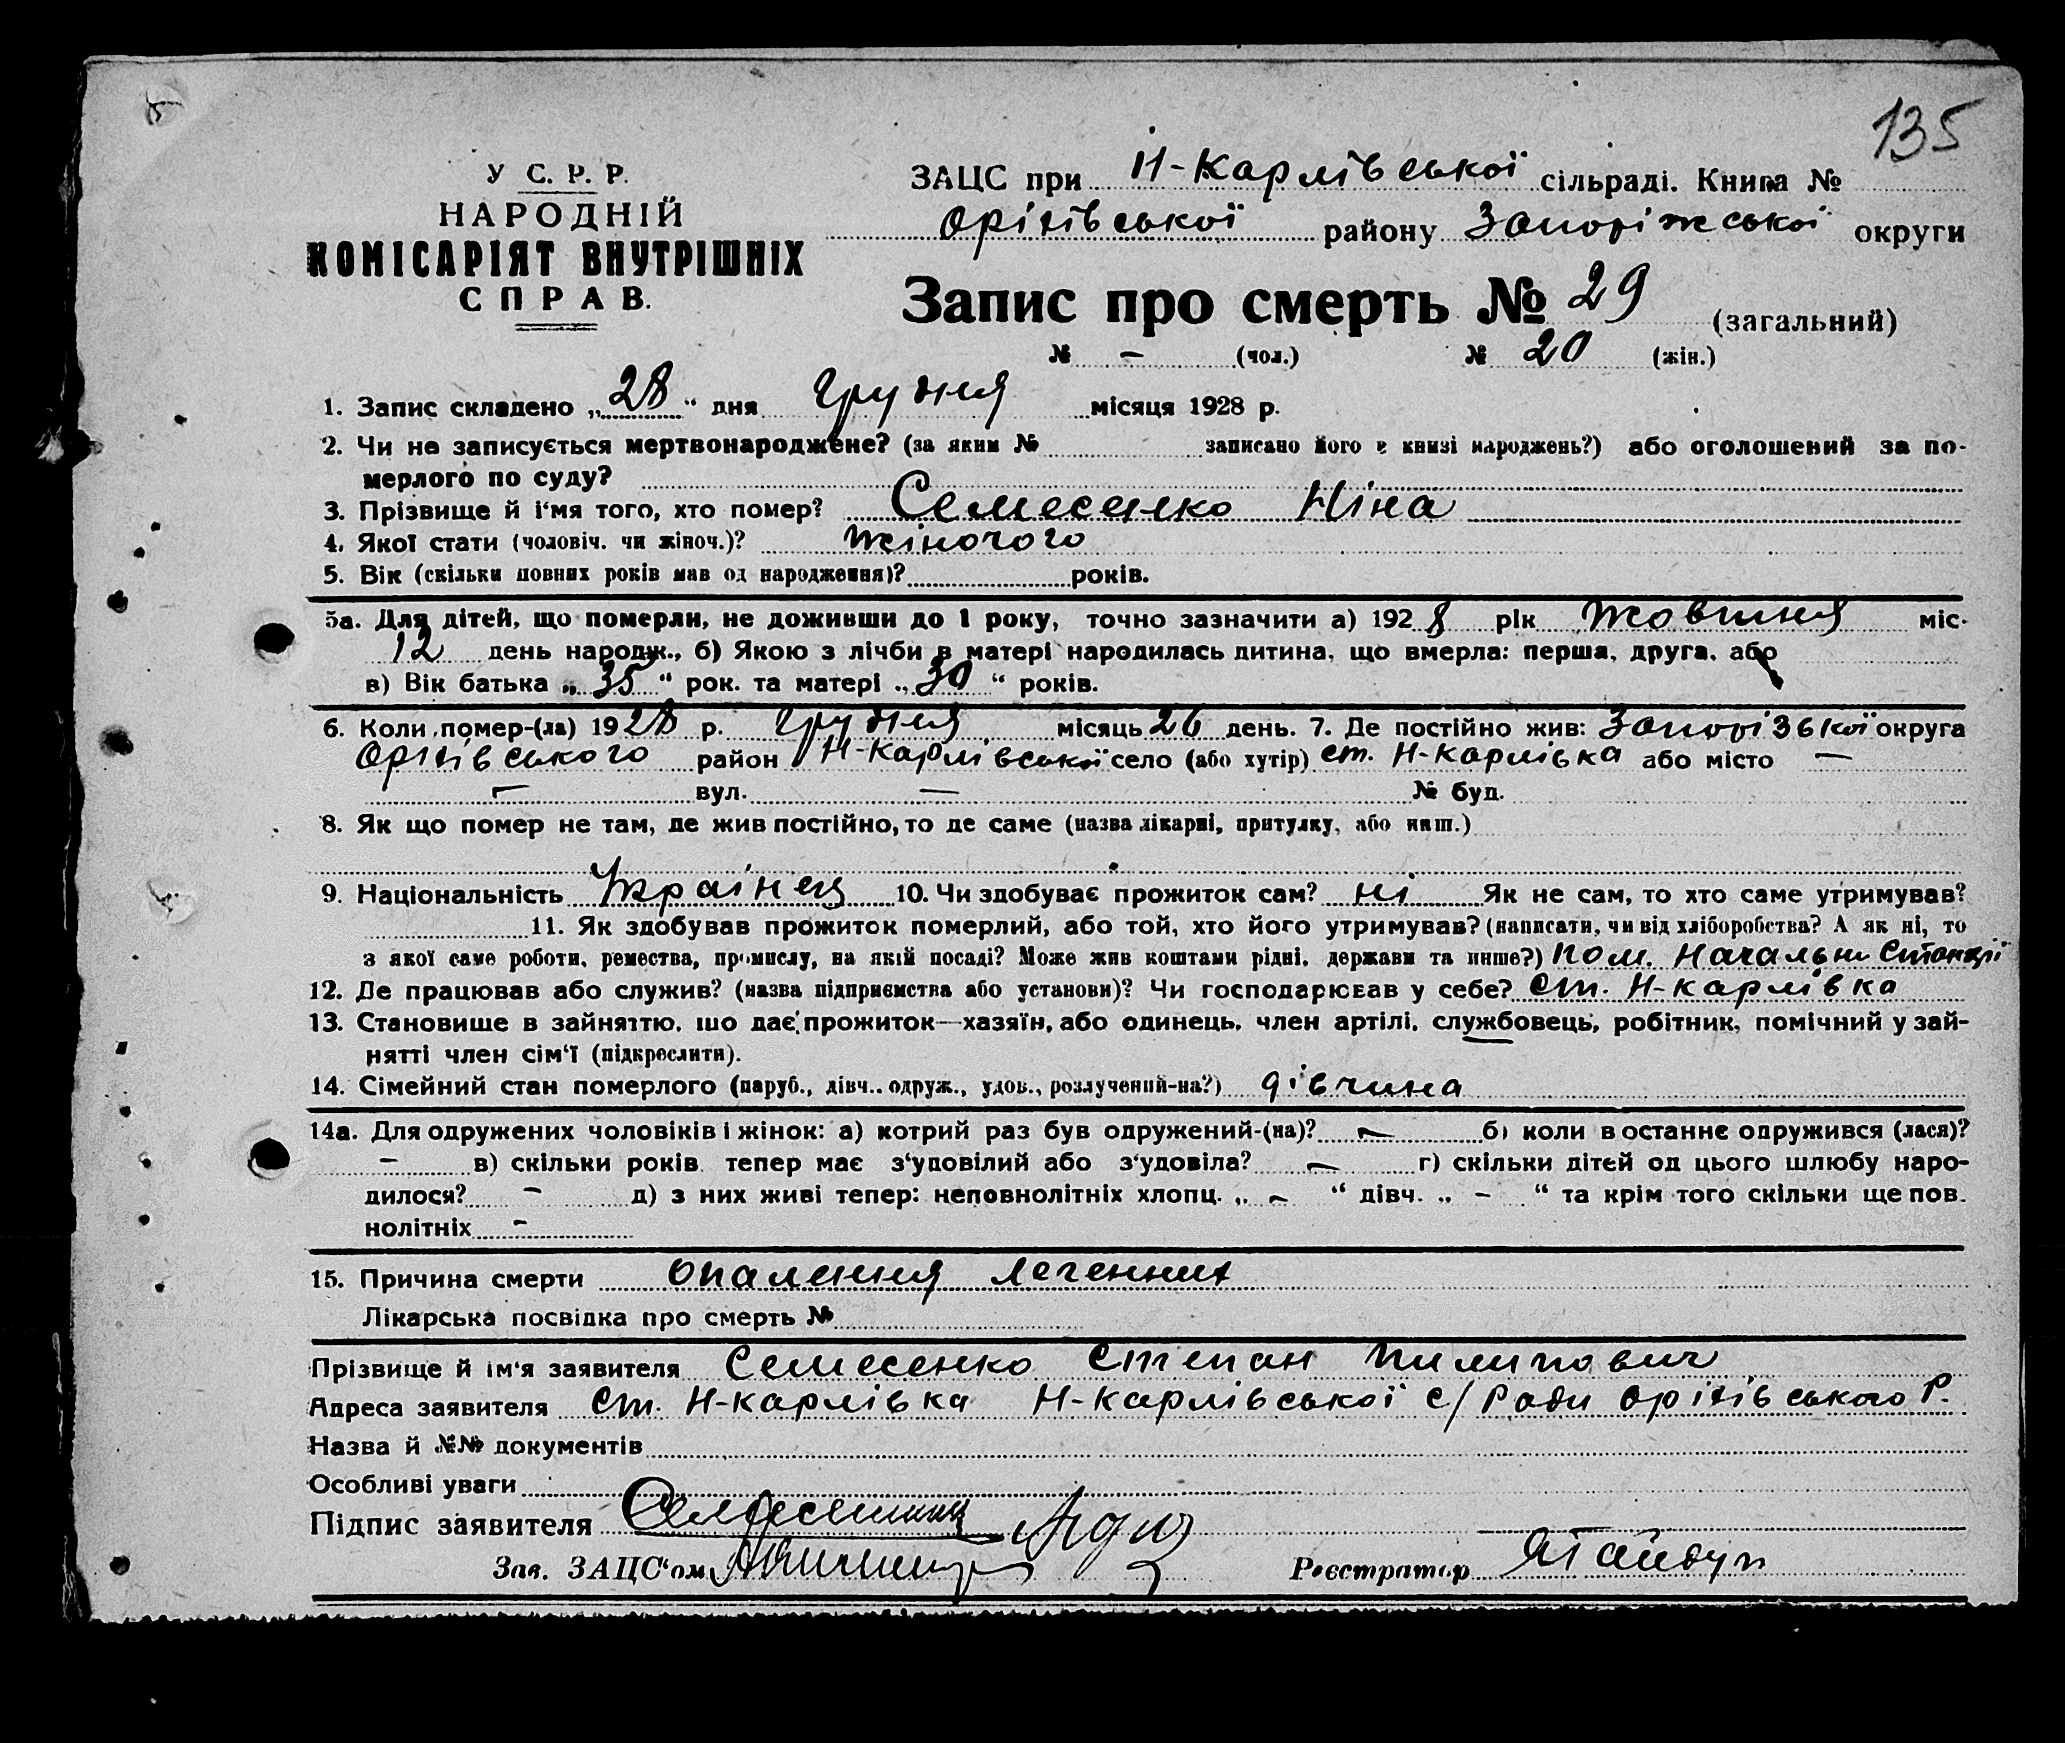 135
У С. Р. Р.
НАРОДНІЙ
КОМІСАРІЯТ ВНУТРІШНІХ
СПРАВ.
ЗАЦС при Н-Карлівської сільраді. Книга №
Оріхівської району Запоріжської округи
Запис про смерть № 29 (загальний)
№ — (чол.) № 20 (жін.)
1. Запис складено „28“ дня грудня місяця 1928 р.
2. Чи не записується мертвонароджене? (за яким № записано його в книзі народжень?) або оголошений за по-
мерлого по суду?
3. Прізвище й і'мя того, хто помер? Семесенко Ніна
4. Якої стати (чоловіч. чи жіноч.)? жіночого
5. Вік (скільки повних років мав од народження)? років.
5а. Для дітей, що померли, не доживши до 1 року, точно зазначити а) 1928 рік жовтня міс.
12 день народж., б) Якою з лічби в матері народилась дитина, що вмерла: перша, друга, або
в) Вік батька „35“ рок. та матері „30“ років.
6. Коли помер-(ла) 1928 р. грудня місяць 26 день. 7. Де постійно жив: Запорізької округа
Оріхівського район Н-Карлівської село (або хутір) ст. Н-Карлівка або місто —
— вул. — № буд.
8. Як що помер не там, де жив постійно, то де саме (назва лікарні, притулку, або инш.)
9. Національність Українця 10. Чи здобуває прожиток сам? ні Як не сам, то хто саме утримував?
11. Як здобував прожиток померлий, або той, хто його утримував? (написати, чи від хліборобства? А як ні, то
з якої саме роботи, ремества, промислу, на якій посаді? Може жив коштами рідні, держави та инше?) Пом. Начальни Станції
12. Де працював або служив? (назва підприємства або установи)? Чи господарював у себе? Ст. Н-Карлівка
13. Становище в зайняттю, що дає прожиток—хазяїн, або одинець, член артілі, службовець, робітник, помічний у зай-
нятті член сім'ї (підкреслити).
14. Сімейний стан померлого (паруб., дівч., одруж., удов., розлучений-на?) дівчина
14а. Для одружених чоловіків і жінок: а) котрий раз був одружений-(на)? — б) коли востаннє одружився (лася)?
— в) скільки років тепер має з'удовілий або з'удовіла? — г) скільки дітей од цього шлюбу наро-
дилося? — д) з них живі тепер: неповнолітніх хлопц. „—“ дівч. „—“ та крім того скільки ще пов.
нолітніх —
15. Причина смерти Опалення легенних
Лікарська посвідка про смерть №
Прізвище й ім'я заявителя Семесенко Степан Пилипович
Адреса заявителя ст. Н-Карлівка Н-Карлівської с/Ради Оріхівського Р.
Назва й №№ документів
Особливі уваги
Підпис заявителя
Зав. ЗАЦС'ом Реєстратор